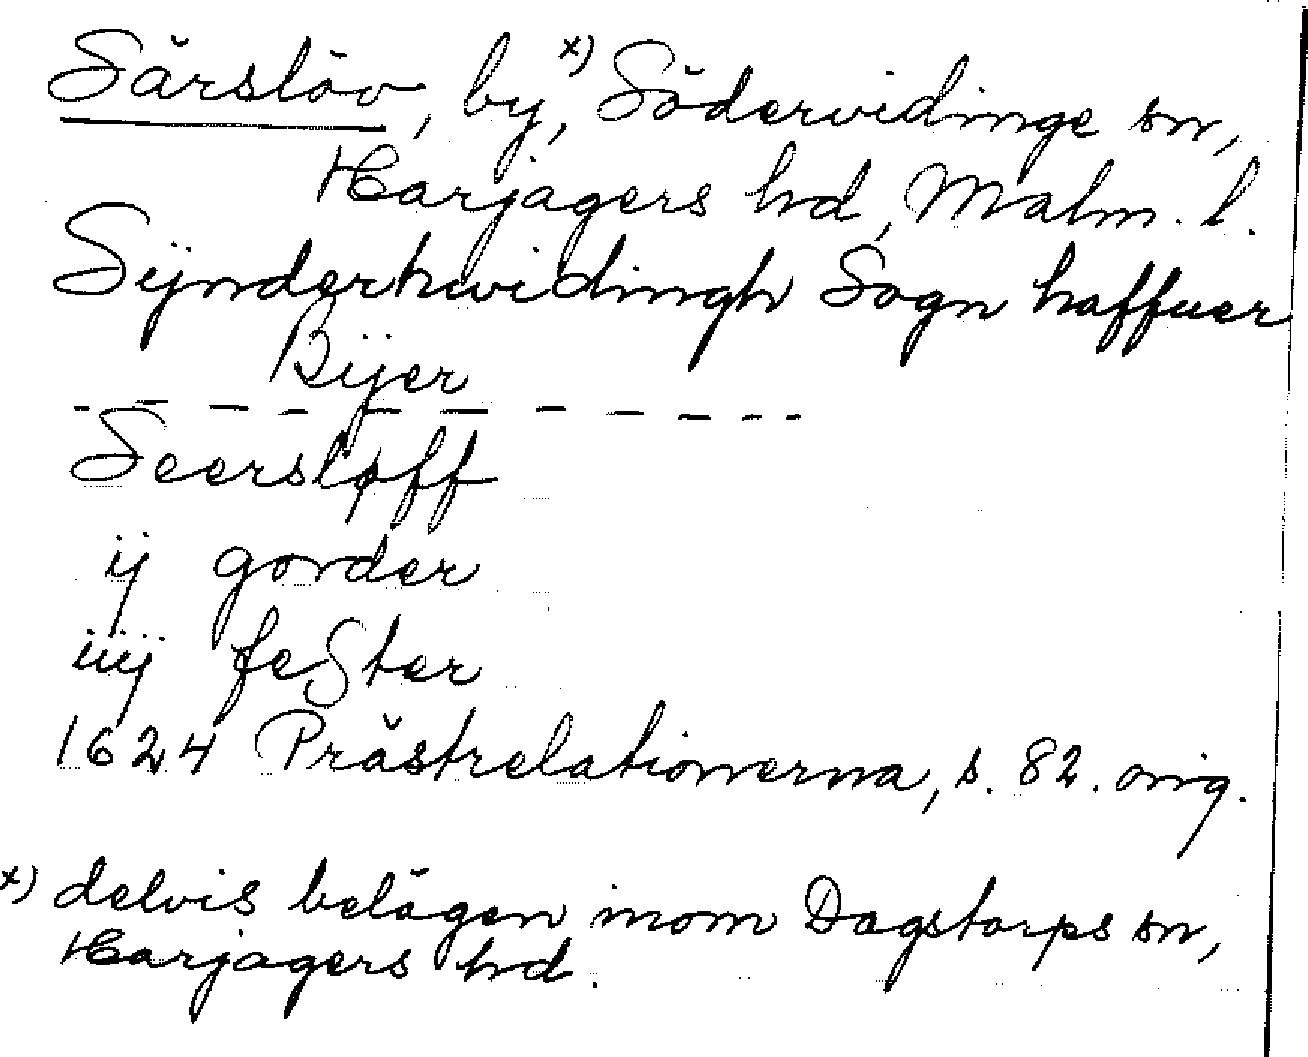 Särslöv, by, x) Södervidinge sn,
Harjagers hd, Malm. l.
Sÿnderhwidingh Sogn haffuer
Bÿer
- - - - - - - - - - -
Seersløff
ij gorder
iiij feSter
1624 Prästrelationerna, s. 82. orig.
x) delvis belägen inom Dagstorps sn,
Harjagers hd.